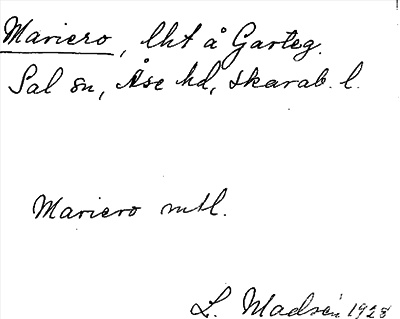 Mariero, lht å Garteg.
Sal sn, Åse hd, Skarab. l.
Mariero mtl.
L. Madsén 1928